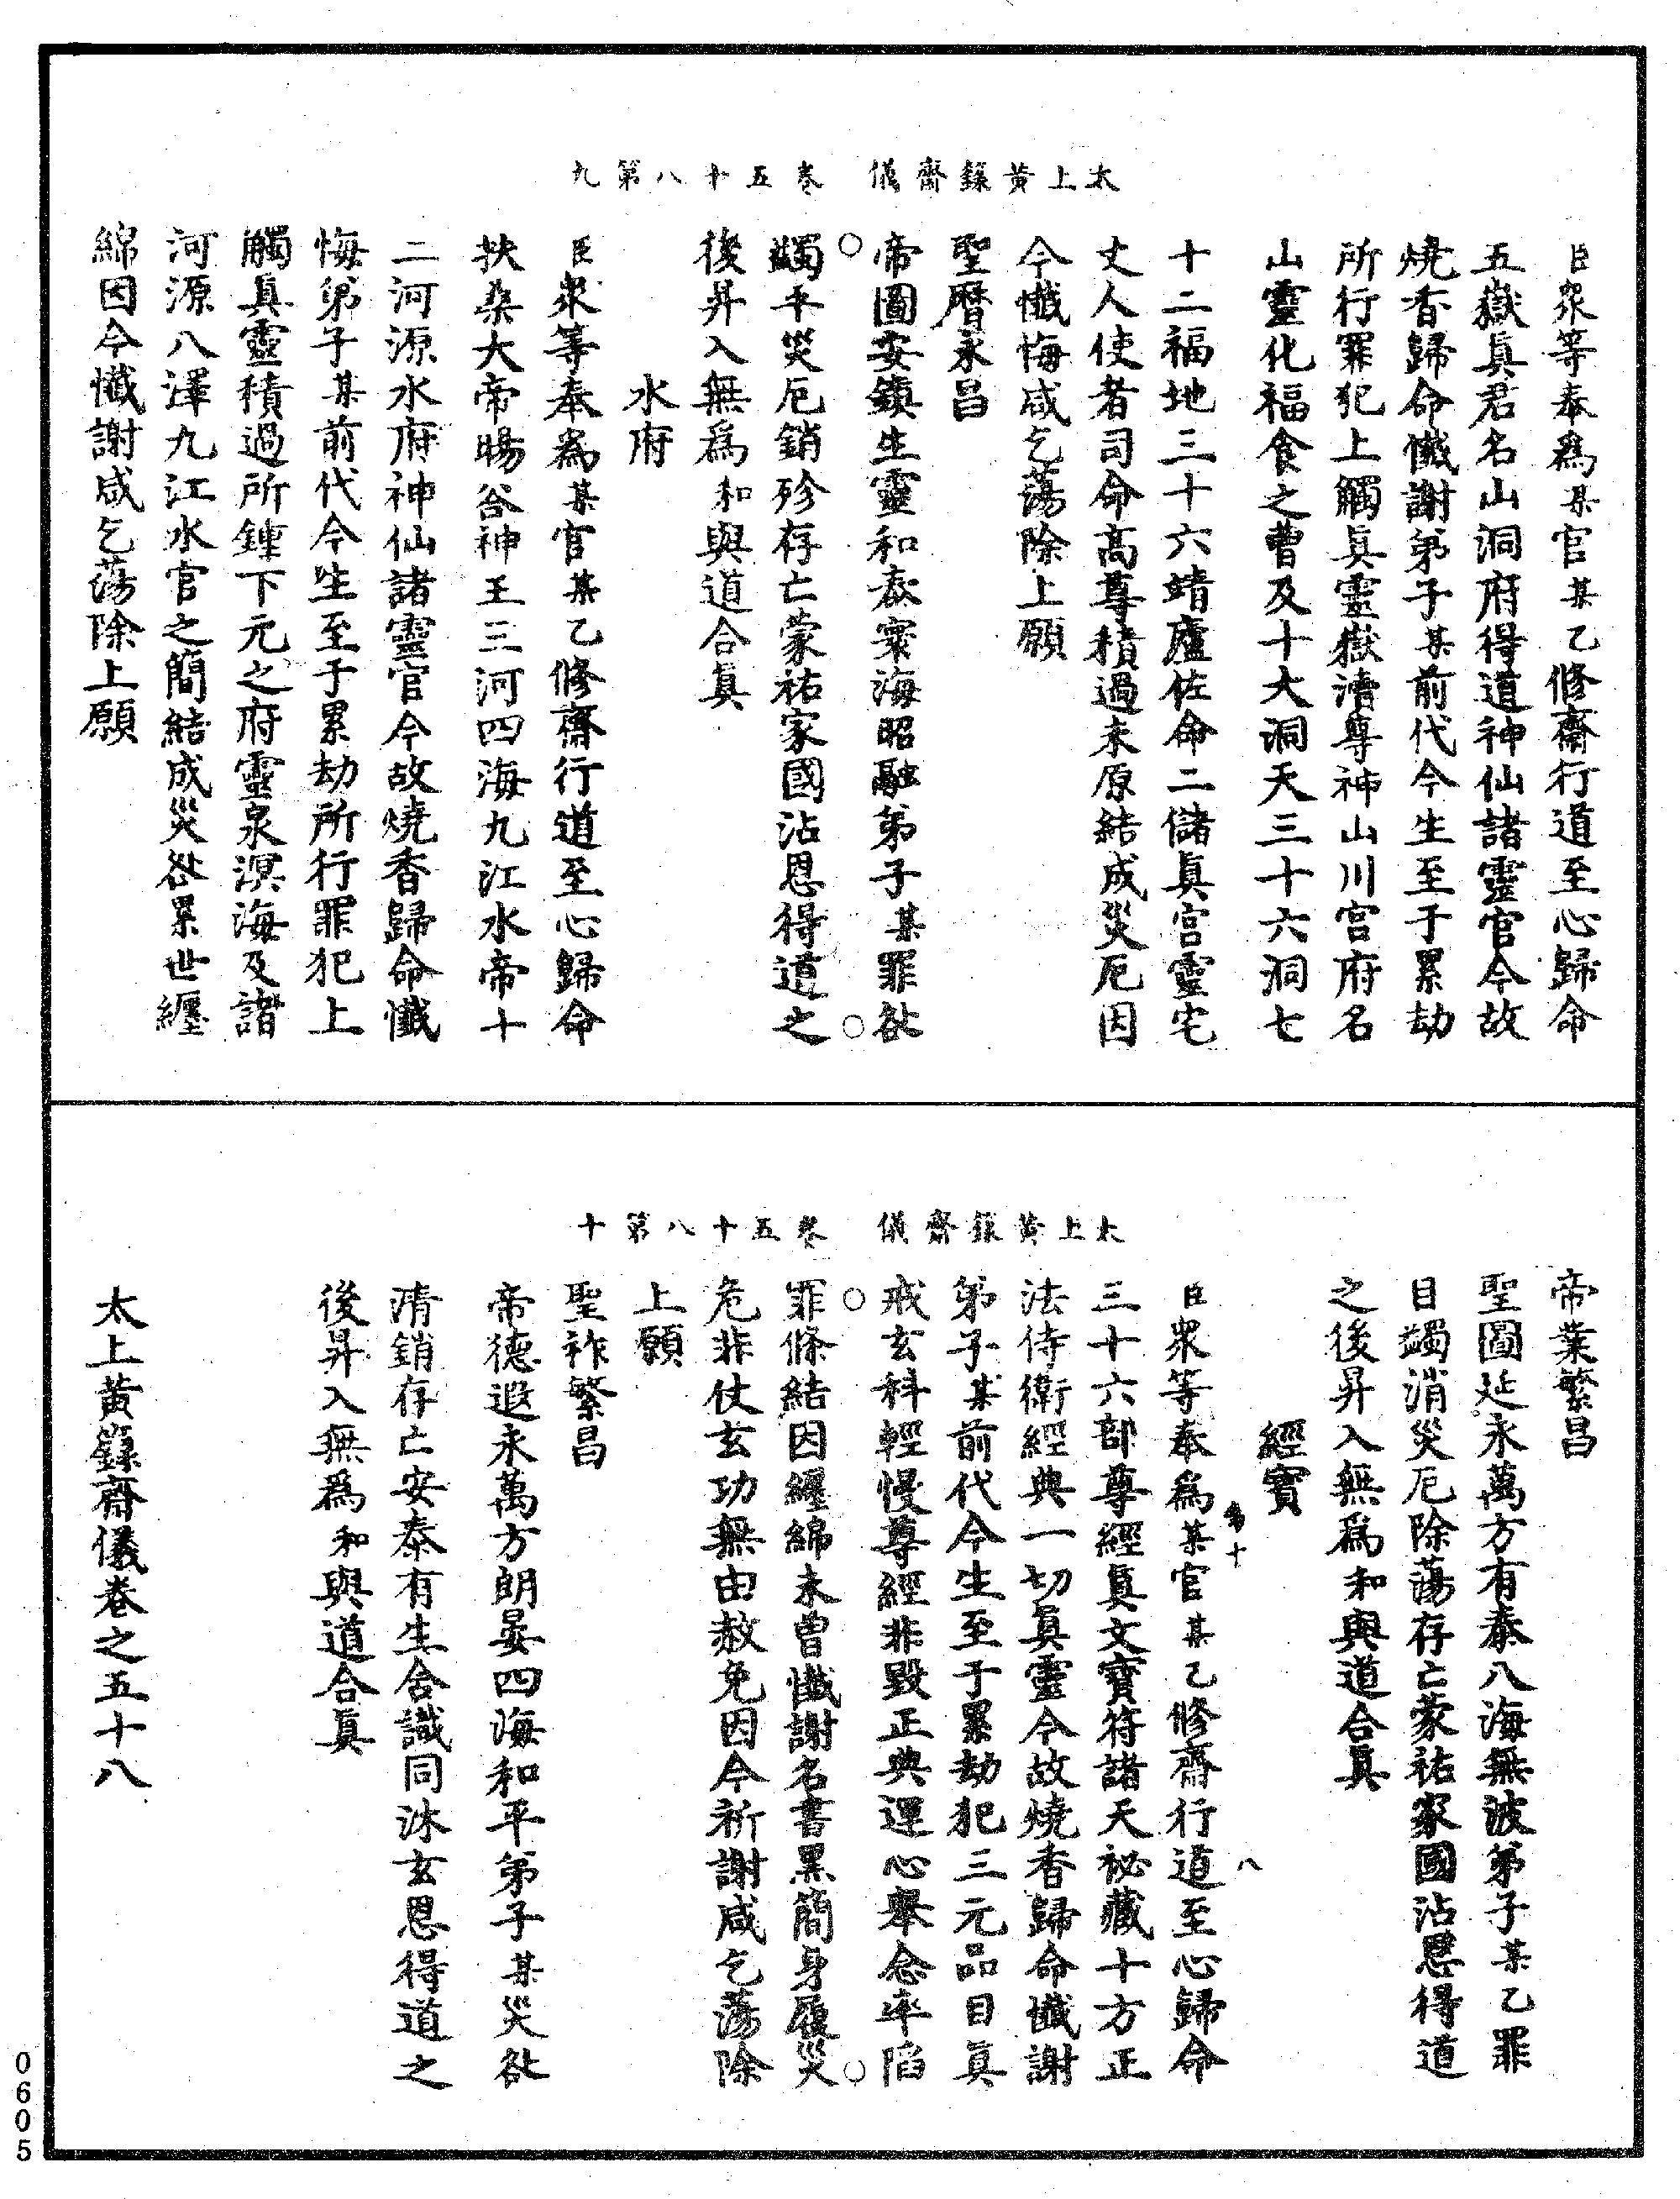 太上黃籙齋儀　卷五十八第九
臣衆等奉爲某官某乙修齋行道至心歸命
五嶽眞君名山洞府得道神仙諸靈官今故
燒香歸命懺謝弟子某前代今生至于累劫
所行罪犯上觸眞靈嶽瀆尊神山川宮府名
山靈化福食之曹及十大洞天三十六洞七
十二福地三十六靖廬佐命二儲眞宮靈宅
丈人使者司命高尊積過未原結成災厄因
今懺悔咸乞蕩除上願
聖曆永昌
帝圖安鎮生靈和泰寰海昭融弟子某罪咎
蠲平災厄銷殄存亡蒙祐家國沾恩得道之
後昇入無爲和與道合眞
水府
臣衆等奉爲某官某乙修齋行道至心歸命
扶桑大帝暘谷神王三河四海九江水帝十
二河源水府神仙諸靈官今故燒香歸命懺
悔弟子某前代今生至于累劫所行罪犯上
觸眞靈積過所鍾下元之府靈泉溟海及諸
河源八澤九江水官之簡結成災咎累世纏
綿因今懺謝咸乞蕩除上願
太上黃籙齋儀　卷五十八第十
帝業繁昌
聖圖延永萬方有泰八海無波弟子某乙罪
目蠲消災厄除蕩存亡蒙祐家國沾恩得道
之後昇入無爲和與道合眞
經寶
臣衆等奉爲某官某乙修齋行道至心歸命
三十六部尊經眞文寶符諸天祕藏十方正
法侍衛經典一切眞靈今故燒香歸命懺謝
弟子某前代今生至于累劫犯三元品目眞
戒玄科輕慢尊經非毀正典運心舉念率陷
罪條結因纏綿未曾懺謝名書黑簡身履災
危非仗玄功無由赦免因今祈謝咸乞蕩除
上願
聖祚繁昌
帝德遐永萬方朗晏四海和平弟子某災咎
清銷存亡安泰有生含識同沐玄恩得道之
後昇入無爲和與道合眞
太上黃籙齋儀卷之五十八
十
八
0605